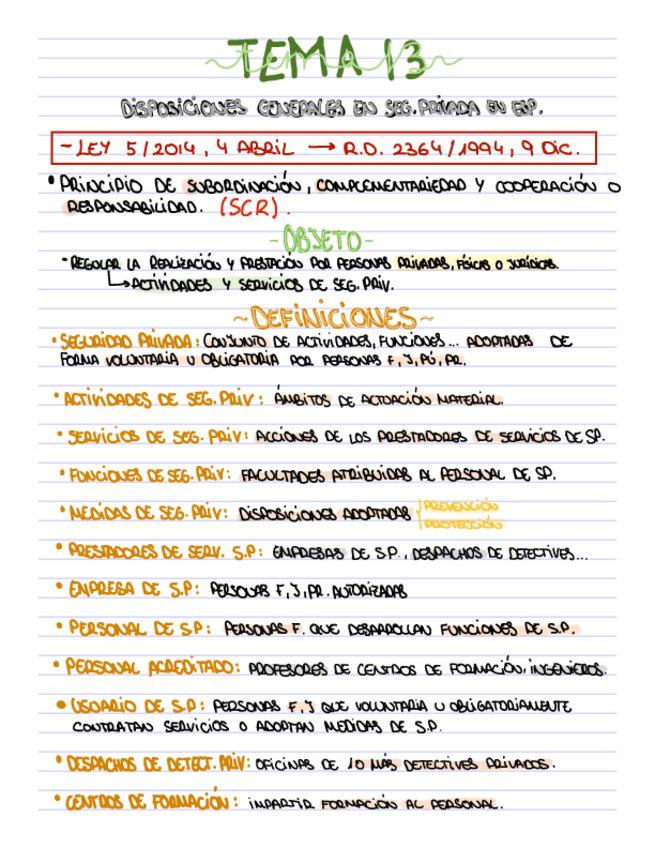 TEMA 13
DISPOSICIONES GENERALES EN SEG. PRIVADA EN ESP.
- LEY 5/2014, 4 ABRIL → R.D. 2364/1994, 9 DIC.
• PRINCIPIO DE SUBORDINACIÓN, COMPLEMENTARIEDAD Y COOPERACIÓN O
RESPONSABILIDAD. (SCR).
- OBJETO -
- REGULAR LA REALIZACIÓN Y PRESTACIÓN POR PERSONAS PRIVADAS, FÍSICAS O JURÍDICAS.
↳ ACTIVIDADES Y SERVICIOS DE SEG. PRIV.
~ DEFINICIONES ~
• SEGURIDAD PRIVADA: CONJUNTO DE ACTIVIDADES, FUNCIONES... ADOPTADAS DE
FORMA VOLUNTARIA U OBLIGATORIA POR PERSONAS F, J, PÚ, PR.
• ACTIVIDADES DE SEG. PRIV: ÁMBITOS DE ACTUACIÓN MATERIAL.
• SERVICIOS DE SEG. PRIV: ACCIONES DE LOS PRESTADORES DE SERVICIOS DE SP.
• FUNCIONES DE SEG. PRIV: FACULTADES ATRIBUIDAS AL PERSONAL DE SP.
• MEDIDAS DE SEG. PRIV: DISPOSICIONES ADOPTADAS PREVENCIÓN
PROTECCIÓN
• PRESTADORES DE SERV. S.P: EMPRESAS DE S.P., DESPACHOS DE DETECTIVES...
• EMPRESA DE S.P: PERSONAS F, J, PR. AUTORIZADAS
• PERSONAL DE S.P: PERSONAS F. QUE DESARROLLAN FUNCIONES DE S.P.
• PERSONAL ACREDITADO: PROFESORES DE CENTROS DE FORMACIÓN, INGENIEROS.
• USUARIO DE S.P: PERSONAS F, J QUE VOLUNTARIA U OBLIGATORIAMENTE
CONTRATAN SERVICIOS O ADOPTAN MEDIDAS DE S.P.
• DESPACHOS DE DETECT. PRIV: OFICINAS DE 1 O MÁS DETECTIVES PRIVADOS.
• CENTROS DE FORMACIÓN: IMPARTIR FORMACIÓN AL PERSONAL.